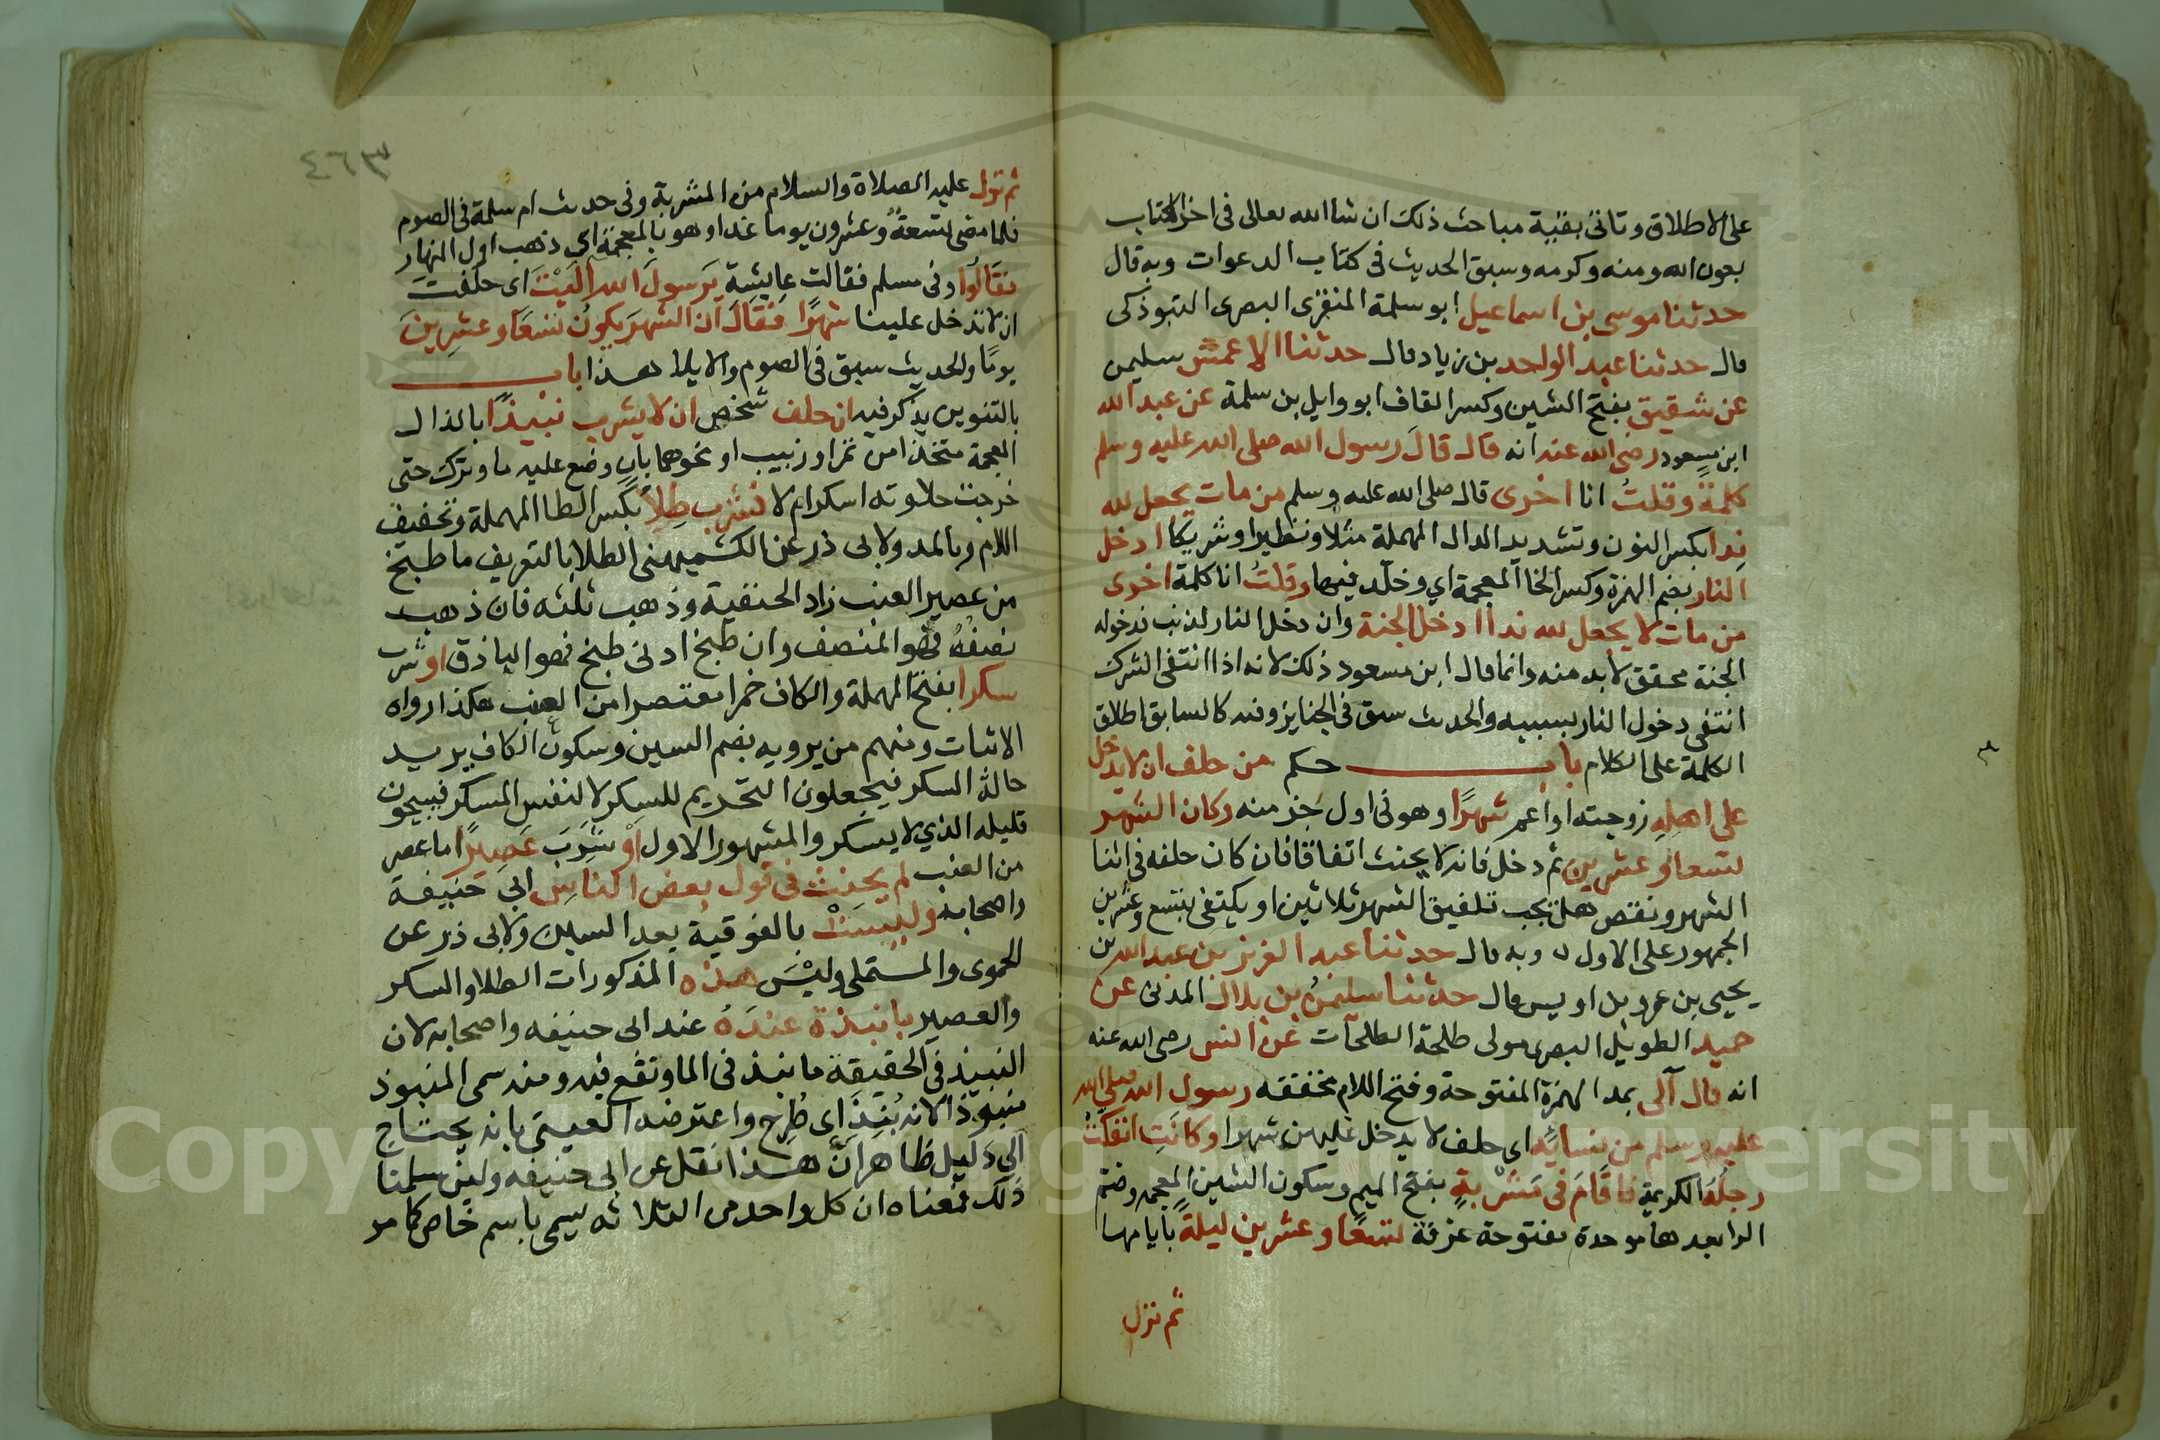 على الاطلاق وتاتى بقية مباحث ذلك ان شا الله تعالى فى اخر الكتاب
بعون الله ومنه وكرمه وسبق الحديث فى كتاب الدعوات وبه قال
حدثنا موسى بن اسماعيل ابو سلمة المنقرى البصرى التبوذكى
قال حدثنا عبد الواحد بن زياد قال حدثنا الاعمش سليمن
عن شقيق بفتح الشين وكسر القاف ابو وايل بن سلمة عن عبد الله
ابن مسعود رضى الله عنه انه قال قال رسول الله صلى الله عليه وسلم
كلمة وقلت انا اخرى قال صلى الله عليه وسلم من مات يجعل لله
ندا بكسر النون وتشديد الدال المهملة مثلا ونظيرا وشريكا ادخل
النار بضم الهمزة وكسر الخا المعجمة اي وخلد فيها وقلت انا كلمة اخرى
من مات لا يجعل لله ندا ادخل الجنة وان دخل النار لذنب فدخوله
الجنة محقق لا بد منه وانما قال ابن مسعود ذلك لانه اذا انتفى الشرك
انتفى دخول النار بسببه والحديث سبق فى الجنايز وفيه كالسابق اطلاق
الكلمة على الكلام باب حكم من حلف ان لا يدخل
على اهله زوجته او اعم شهرًا وهو فى اول جز منه وكان الشهر
تسعا وعشرين ثم دخل فانه لا يحنث اتفاقا فان كان حلفه فى اثنا
الشهر ونقص هل يجب تلفيق الشهر ثلاثين او يكتفى بتسع وعشرين
الجمهور على الاول وبه قال حدثنا عبد العزيز بن عبد الله بن
يحيى بن عمرو بن اويس قال حدثنا سليمن بن بلال المدنى عن
حميد الطويل البصرى مولى طلحة الطلحات عن انس رضى الله عنه
انه قال آلى بمد الهمزة المفتوحة وفتح اللام مخففه رسول الله صلى الله
عليه وسلم من نسايه اى حلف لا يدخل عليهن شهرا وكانت انفكت
رجله الكريمة فاقام فى مشربة بفتح الميم وسكون الشين المعجمه وضم
الرا بعدها موحدة مفتوحة غرفة تسعًا وعشرين ليلة بايامها
ثم نزل
٣٦٤
ثم نزل عليه الصلاة والسلام من المشربة وفى حديث ام سلمة فى الصوم
فلما مضى تسعة وعشرون يوما غدا وهو بالمعجمة اى ذهب اول النهار
فقالوا وفى مسلم فقالت عايشة يرسول الله اليت اى حلفت
ان لا تدخل علينا شهرًا فقال ان الشهر يكون تسعا وعشرين
يومًا والحديث سبق فى الصوم والايلا هذا باب
بالتنوين يذكر فيه ان حلف شخص ان لا يشرب نبيذًا بالذال
المعجمة متخذا من تمر او زبيب او نحوهما بان وضع عليه ما وترك حتى
خرجت حلاوته اسكر ام لا فشرب طلا بكسر الطا المهملة وتخفيف
اللام وبالمد ولابى ذر عن الكشميهنى الطلا بالتعريف ما طبخ
من عصير العنب زاد الحنفية وذهب ثلثه فان ذهب
نصفه فهو المنصف وان طبخ ادنى طبخ فهو الباذق او شرب
سكرا بفتح المهملة والكاف خمرا معتصرا من العنب هكذا رواه
الاثبات ومنهم من يرويه بضم السين وسكون الكاف يريد
حالة السكر فيجعلون التحريم للسكر لا لنفس المسكر فيبيحون
قليله الذي لا يسكر والمشهور الاول او شرب عصيرًا ما عصر
من العنب لم يحنث فى قول بعض الناس ابى حنيفة
واصحابه وليست بالفوقية بعد السين ولابى ذر عن
الحموى والمستملى وليس هذه المذكورات الطلا والسكر
والعصير بانبذة عنده عند ابى حنيفه واصحابه لان
النبيذ فى الحقيقة ما نبذ فى الما ونقع فيه ومنه سمى المنبوذ
منبوذا لانه نبذ اى طرح واعترضه العينى بانه يحتاج
الى دليل ظاهر ان هذا نقل عن ابى حنيفه ولين سلمنا
ذلك فمعناه ان كل واحد من الثلاثه يسمى باسم خاص كما مر
Copy Saud University